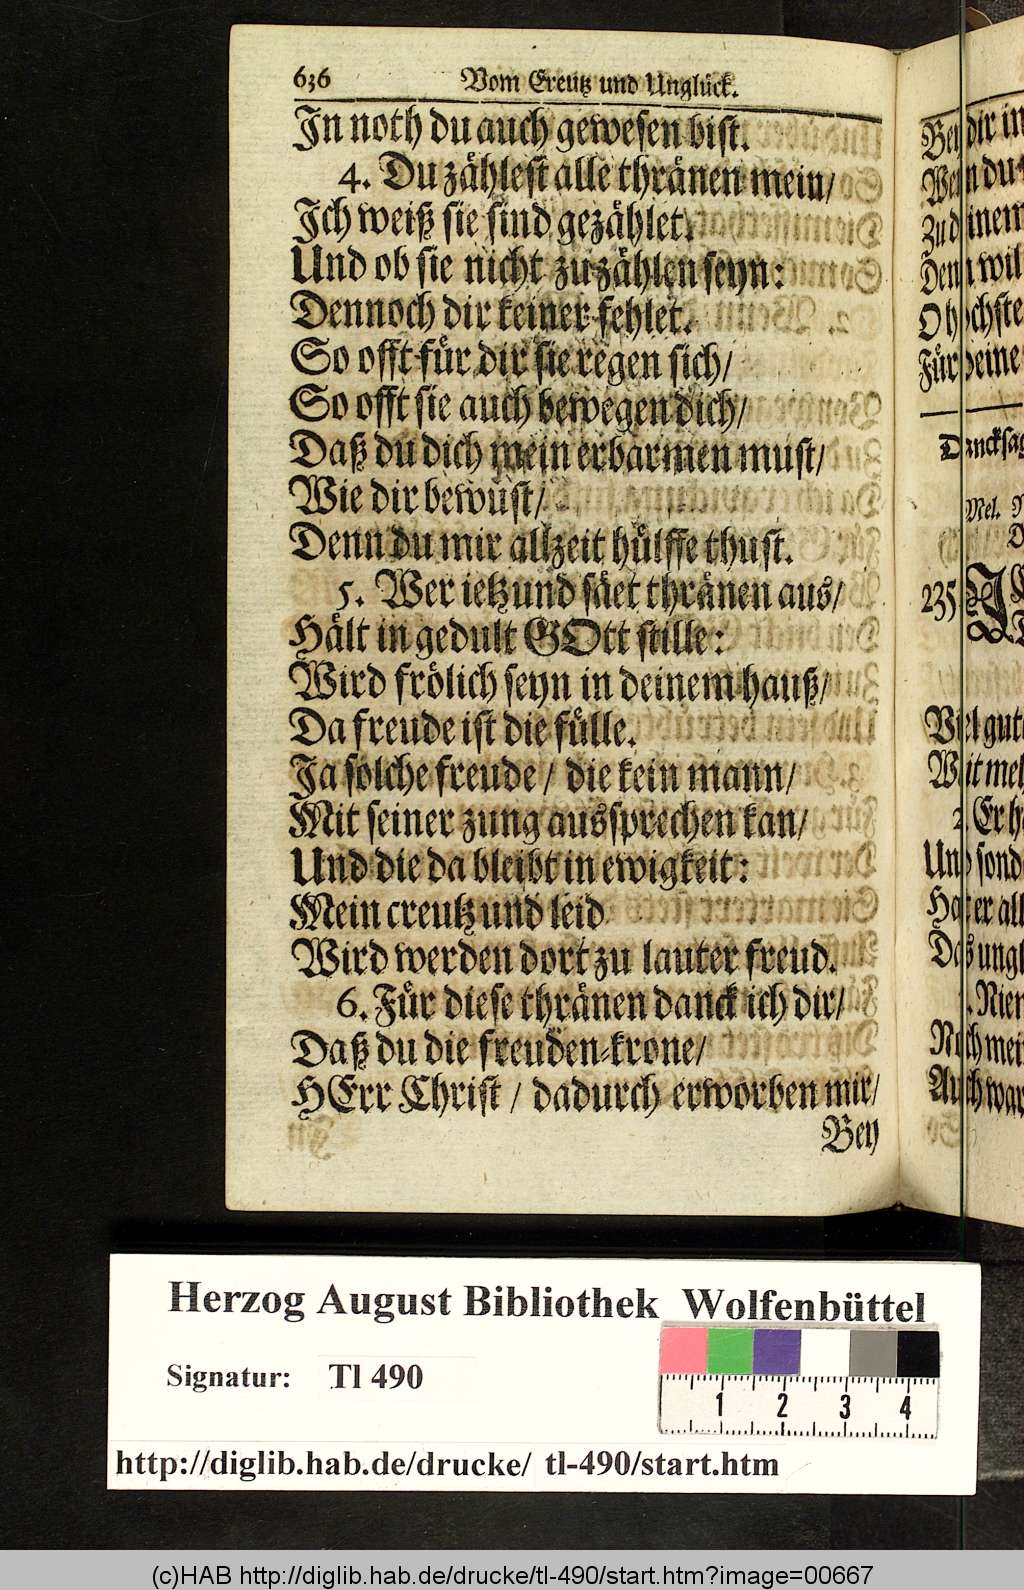 636 Vom Creutz und Unglück.
In noth du auch gewesen bist.
4. Du zählest alle thränen mein/
Ich weiß sie sind gezählet.
Und ob sie nicht zu zählen seyn:
Dennoch dir keiner fehlet.
So offt für dir sie regen sich/
So offt sie auch bewegen dich/
Daß du dich mein erbarmen must/
Wie dir bewust/
Denn du mir allzeit hülffe thust.
5. Wer ietzund säet thränen aus/
Hält in gedult GOtt stille:
Wird frölich seyn in deinem hauß/
Da freude ist die fülle.
Ja solche freude / die kein mann/
Mit seiner zung aussprechen kan/
Und die da bleibt in ewigkeit:
Mein creutz und leid
Wird werden dort zu lauter freud.
6. Für diese thränen danck ich dir/
Daß du die freuden-krone/
HErr Christ / dadurch erworben mir/
Bey
235
Herzog August Bibliothek Wolfenbüttel
Signatur: Tl 490
1 2 3 4
http://diglib.hab.de/drucke/ tl-490/start.htm
(c)HAB http://diglib.hab.de/drucke/tl-490/start.htm?image=00667